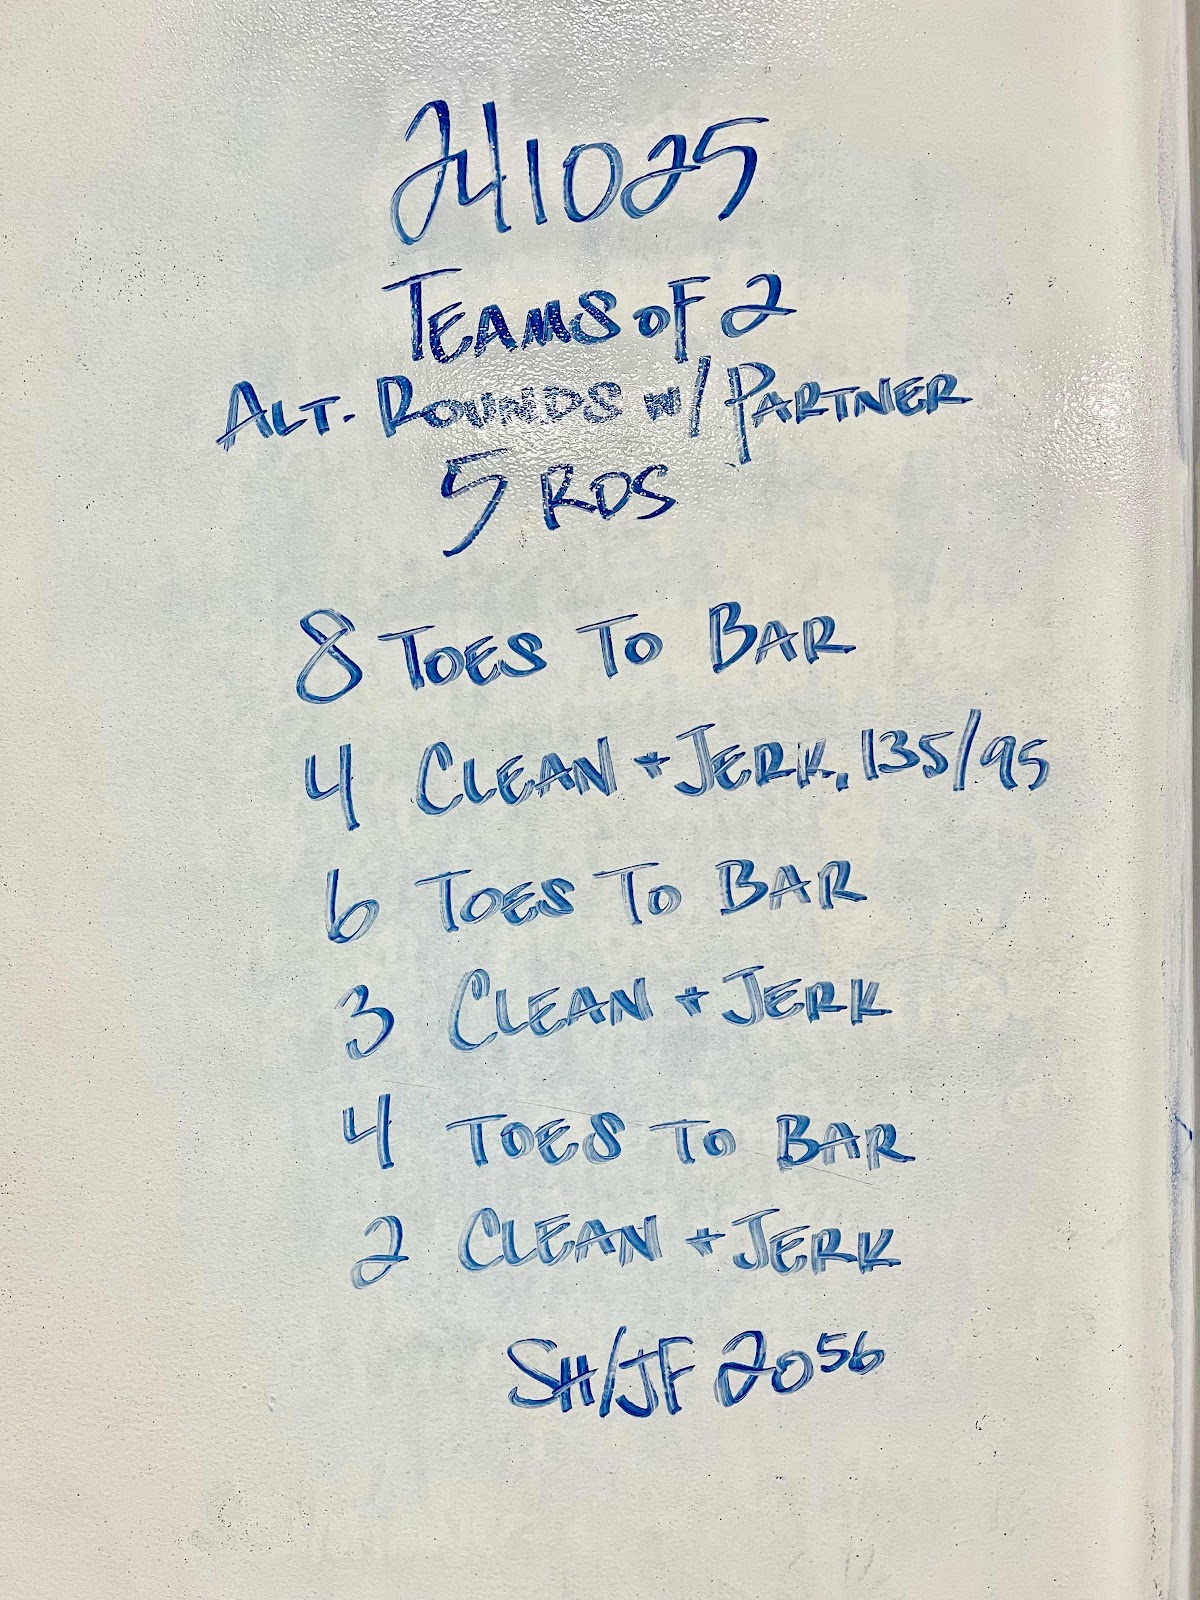 241025
TEAMS OF 2
ALT. ROUNDS W/ PARTNER
5 RDS
8 TOES TO BAR
4 CLEAN + JERK, 135/95
6 TOES TO BAR
3 CLEAN + JERK
4 TOES TO BAR
2 CLEAN + JERK
SH/JF 2056